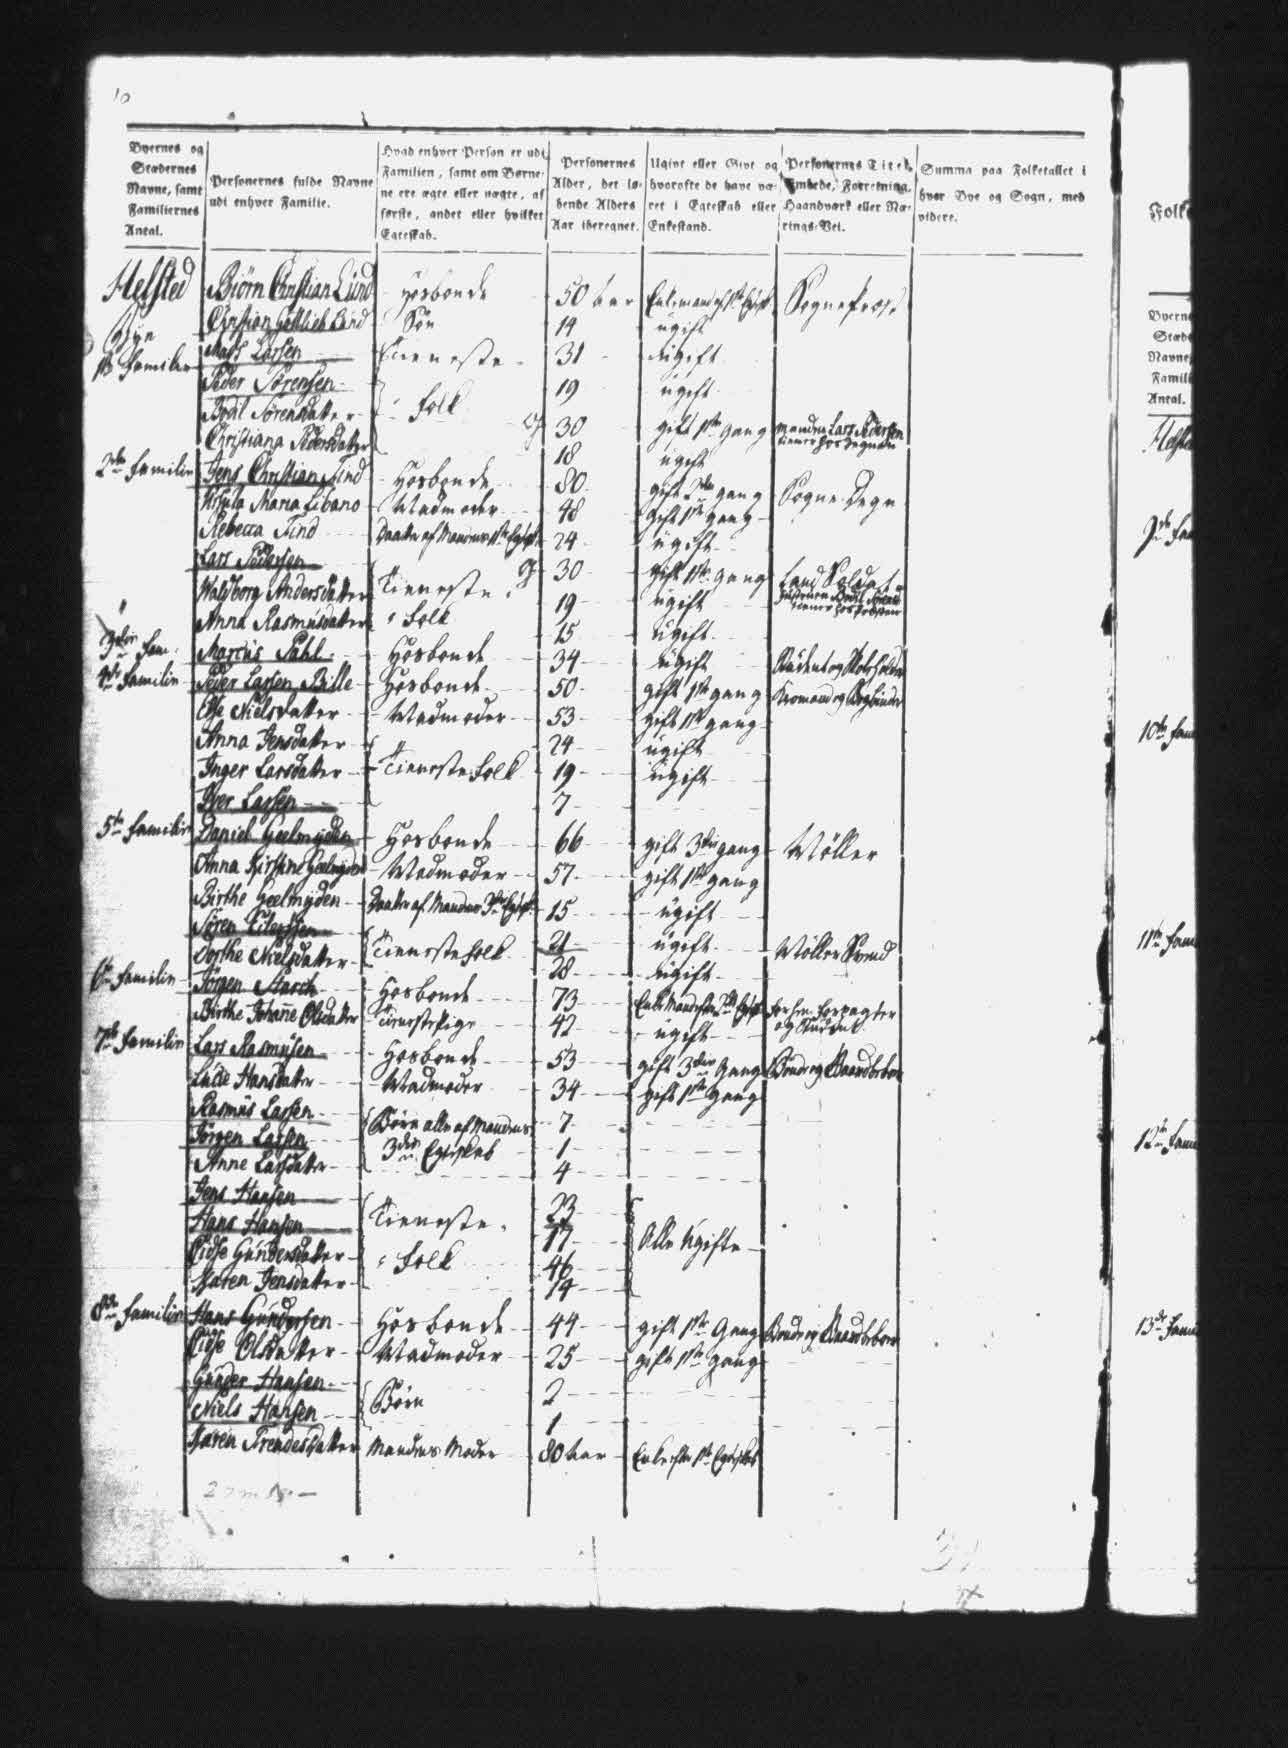 10
Byernes og Stædernes Navne, samt Familiernes Antal.
Personernes fulde Navne udi enhver Familie.
Hvad enhver Person er udi Familien, samt om Børnene ere ægte eller uægte, af første, andet eller hvilket Egteskab.
Personernes Alder, det løbende Alders Aar iberegnet.
Ugivt eller Givt og hvorofte de have været i Egteskab eller Enkestand.
Personernes Titel, Embede, Forretning, Haandværk eller Nærings-Vei.
Summa paa Folketallet i hver Bye og Sogn, med videre.
Helsted Bye
1ste Familie Biørn Christian Lund Hosbonde 50 Aar Enkemand af 1ste Egtesk. Sognepræst
Christian Gottlieb Lund Søn 14 ugift
Mads Larsen Tieneste 31 ugift
Peder Sørensen Folk 19 ugift
Bodil Sørensdatter 30 gift 1ste Gang Manden Lars Pedersen tiener hos Degnen
Christiana Pedersdatter 18 ugift
2den Familie Jens Christian Tind Hosbonde 80 gift 2den gang Sogne-Degn
Ursula Maria Libano Madmoder 48 gift 1ste gang
Rebecca Tind Daatter af Mandens 1ste Egtesk. 24 ugift
Lars Pedersen Tieneste 30 gift 1ste Gang Land Soldat
Walborg Andersdatter Folk 19 ugift Hustruen Bodil Sørensd. tiener hos Præsten
Anna Rasmusdatter 15 ugift
3die Fam. Marcus Pahl Hosbonde 34 ugift
4de Familie Peder Larsen Bille Hosbonde 50 gift 1ste gang Kromand og
Else Nielsdatter Madmoder 53 gift 1ste gang
Anna Jensdatter 24 ugift
Inger Larsdatter Tieneste Folk 19 ugift
Iver Larsen 7
5te Familie Daniel Geelmyden Hosbonde 66 gift 3die gang Møller
Anna Kirstine Geelmyden Madmoder 57 gift 1ste gang
Birthe Geelmyden Daatter af Mandens 3die Egtesk. 15 ugift
Søren 21 ugift Møller Svend
Dorthe Nielsdatter Tieneste Folk 28 ugift
6te Familie Jørgen Hosbonde 73 Enkemand efter Egtesk. forhen Forpagter
Birthe Johanne Olsdatter Tienestepige 42 ugift
7de Familie Lars Rasmusen Hosbonde 53 gift 3die Gang Bonde og Gaardbeboer
Lucie Hansdatter Madmoder 34 gift 1ste Gang
Rasmus Larsen Børn alle af Mandens 7
Jørgen Larsen 3die Egteskab 1
Anne Larsdatter 4
Jens Hansen Tieneste 23
Hans Hansen 17 Alle Ugifte
Sidse Gundersdatter Folk 46
Karen Jensdatter 14
8de Familie Hans Gundersen Hosbonde 44 gift 1ste Gang Bonde og Gaardbeboer
Sidse Olsdatter Madmoder 25 gift 1ste gang
Gunder Hansen Børn 2
Niels Hansen 1
Karen Trendesdatter Mandens Moder 80 Aar Enke efter 1ste Egteskab
Folke
Byerne
Stæde
Navne
Famili
Antal.
Helste
9de Fam
10de Fam
11te Fam
12te Fam
13de Fam